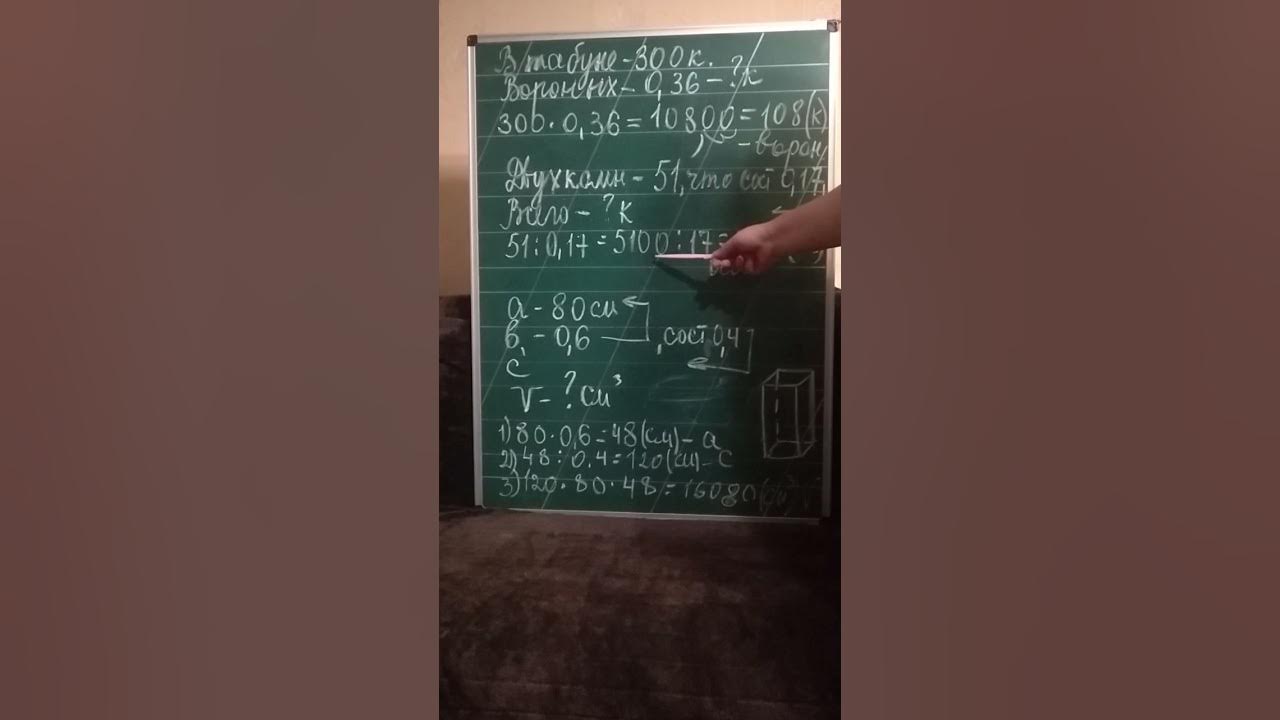 В табуне - 300 к.
Вороных - 0,36 - ? к
300 · 0,36 = 10800 = 108 (к)
, - ворон
Двухкомн - 51, что сост 0,17,
Всего - ? к
51 : 0,17 = 5100 : 17 =
a - 80 см
в, - 0,6 , сост 0,4
с
V - ? см³
1) 80 · 0,6 = 48 (см) - a
2) 48 : 0,4 = 120 (см) - с
3) 120 · 80 · 48 = 16080